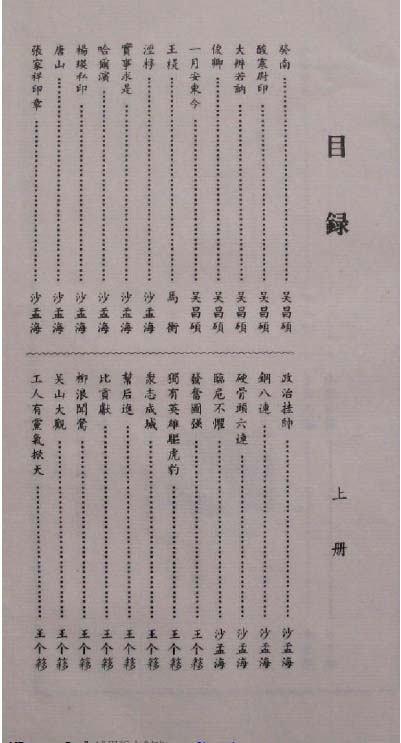 目錄
上册
癸南 吴昌碩
酸寒尉印 吴昌碩
大辨若訥 吴昌碩
俊卿 吴昌碩
一月安東令 吴昌碩
王禔 馬衡
沙孟海
實事求是 沙孟海
哈爾濱 沙孟海
楊瑛私印 沙孟海
唐山 沙孟海
張家祥印章 沙孟海
政治挂帥 沙孟海
鋼八連 沙孟海
硬骨頭六連 沙孟海
臨危不懼 沙孟海
發奮圖强 王个簃
獨有英雄驅虎豹 王个簃
衆志成城 王个簃
幫后進 王个簃
比貢獻 王个簃
柳浪聞鶯 王个簃
吴山大觀 王个簃
工人有黨氣掀天 王个簃